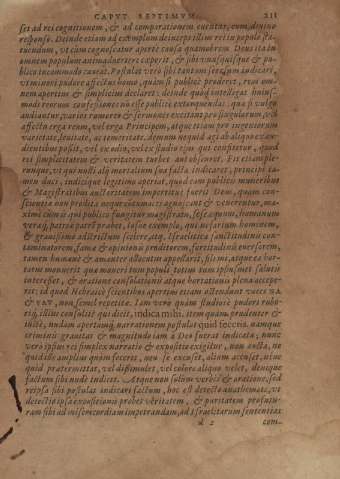 CAPUT SEPTIMUM. 211
set ad rei cognitionem, & ad comparationem excitat, cum, divino
responso. Deinde etiam ad exemplum
cundum, ut eam cognoscatur aperte causa quamobrem Deus ita in
omnem populum animadvertere coeperit, & sibi unusquisque &
blico incommodo caveat. Postulat vero sibi tantum
vt minori pudore affectus homo, quàm si publicè proderet, rem om-
nem apertius & simplicius declaret: deinde quòd
modi reorum confessiones nō esse publicè extorquendas: quæ si vulgo
audiantur, varios rumores & sermones excitant pro singulorum, vel
affectu erga reum, vel erga Principem, atque etiam pro ingeniorum
varietate, levitate, ac temeritate. demum nequid
dientibus possit, vel ex odio, vel ex studio ejus qui confitetur, quod
rei simplicitatem & veritatem turbet aut obscuret.
runque, ut qui nolit alij mortalium sua facta indicare, principi ta-
men duci, indicique legitimo aperiat, quod cum publicis muneribus
& Magistratibus auctoritatem impertitus fuerit Deus, quam con-
scientia non prodita neque
maxime cum ij qui publico funguntur magistratu, sese æquum, humanum
verúq; patriæ patrē probet, Iosue exemplo, qui nefarium hominem,
& gravissimo adstrictum scelere, atq; Israëlitica sanctitudinis con-
taminatorem, famæ & opinionis proditorem, fortitudinis eversorem,
tamen humanè & amanter allocutus appellavit, filium, atque ea hor-
tatus monuerit quæ maxime tum populi totius tum ipsiusmet salutis
interesset, & oratione consolationis atque hortationis plena accepe-
rit: id quod Hebraicè scientibus apertum etiam ostendunt voces
& נא, non semel repetitæ. Iam vero quàm studiosè pudori rubo-
riq; illius consulit qui dicit, indica mihi, item quàm prudenter &
iustè, nudam apertamq; narrationem postulat quid feceris. namque
criminis gravitas & magnitudo iam à Deo fuerat indicata; nunc
vero ipsius rei simplex narratio & expositio exigitur, non aucta, ne
quid esse amplius quàm fecerit, non se excuset, alium accuset, neque
quid prætermittat, vel dissimulet, vel colore aliquo velet, denique
factum sibi nudè indicet. Atque non solùm verbis & oratione, sed
reipsa sibi postulat indicari factum, hoc est detecto anathemate, ut
detectio ipsa expositionis probet veritatem, & puritatem profutu-
ram sibi ad misericordiam impetrandam, ad Israëlitarum sententias
d 2 com-